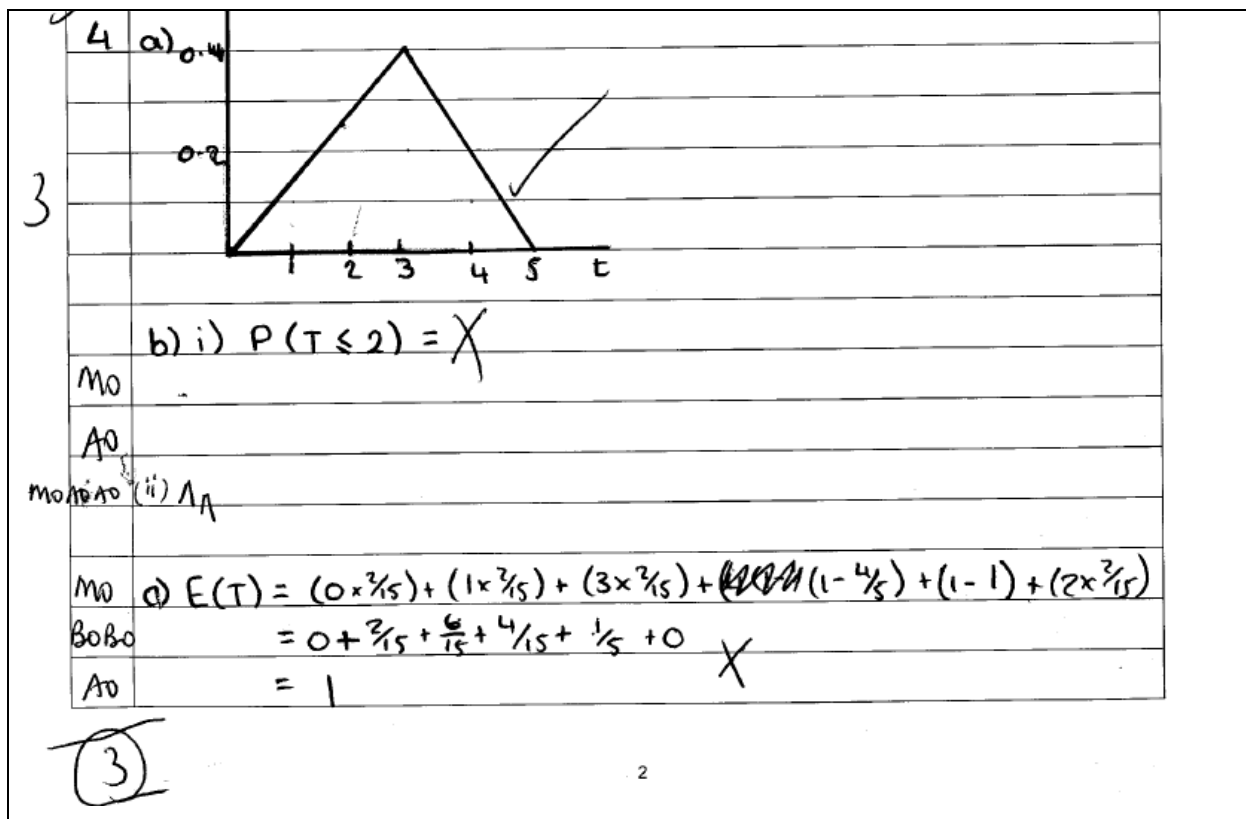 4 a) 0.4
0.2
3
1 2 3 4 5 t
b) i) P(T ≤ 2) =
M0
A0
M0 A0 A0 (ii) ΛΛ
M0 a) E(T) = (0 × 2/15) + (1 × 2/15) + (3 × 2/15) + (1 - 4/5) + (1 - 1) + (2 × 2/15)
B0 B0 = 0 + 2/15 + 6/15 + 4/15 + 1/5 + 0
A0 = 1
3
2